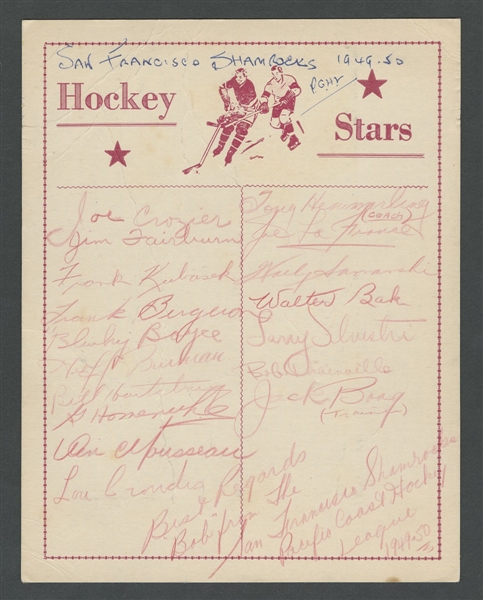 SAN FRANCISCO SHAMROCKS 1949-50
PCHL
Hockey
Stars
Joe Crozier
Jim Fairburn
Frank Kubasek
Frank Bergeron
Blinky Boyce
Bill
Van Mousseau
Lou Crowdis
Tony Hemmerling
(COACH)
Leo La France
Wally
Walter Bak
Larry Silvestri
Bob
Jack Boag
(Trainer)
Best Regards
"Bob" from The
San Francisco Shamrocks
Pacific Coast Hockey
League
1949-50